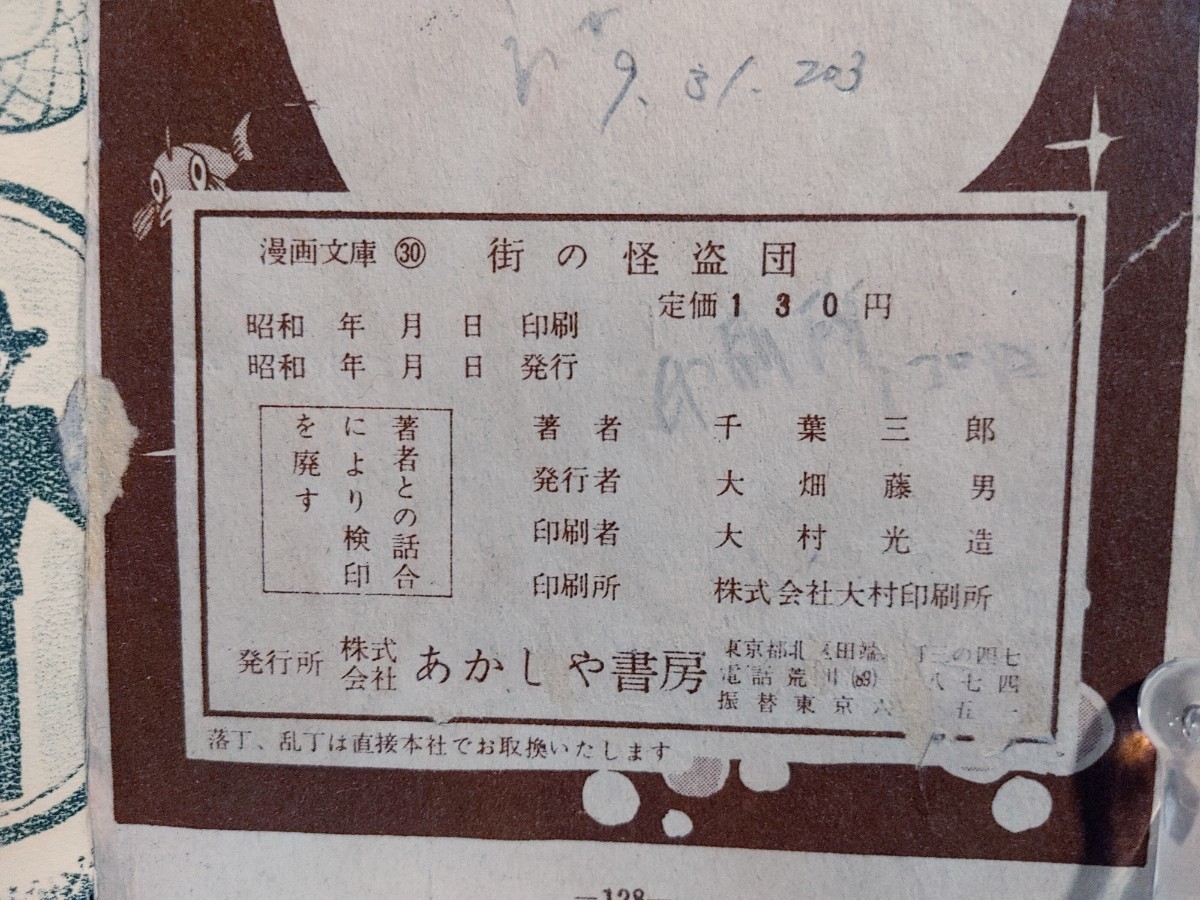 9. 31. 203
漫画文庫 ㉚ 街の怪盗団
定価130円
昭和 年 月 日 印刷
昭和 年 月 日 発行
著者との話合
により検印
を廃す
著者 千葉三郎
発行者 大畑藤男
印刷者 大村光造
印刷所 株式会社大村印刷所
発行所 株式会社 あかしや書房
東京都北区田端 丁三の四七
電話荒川(89) 八七四
振替東京六 五一
落丁、乱丁は直接本社でお取換いたします
—128—